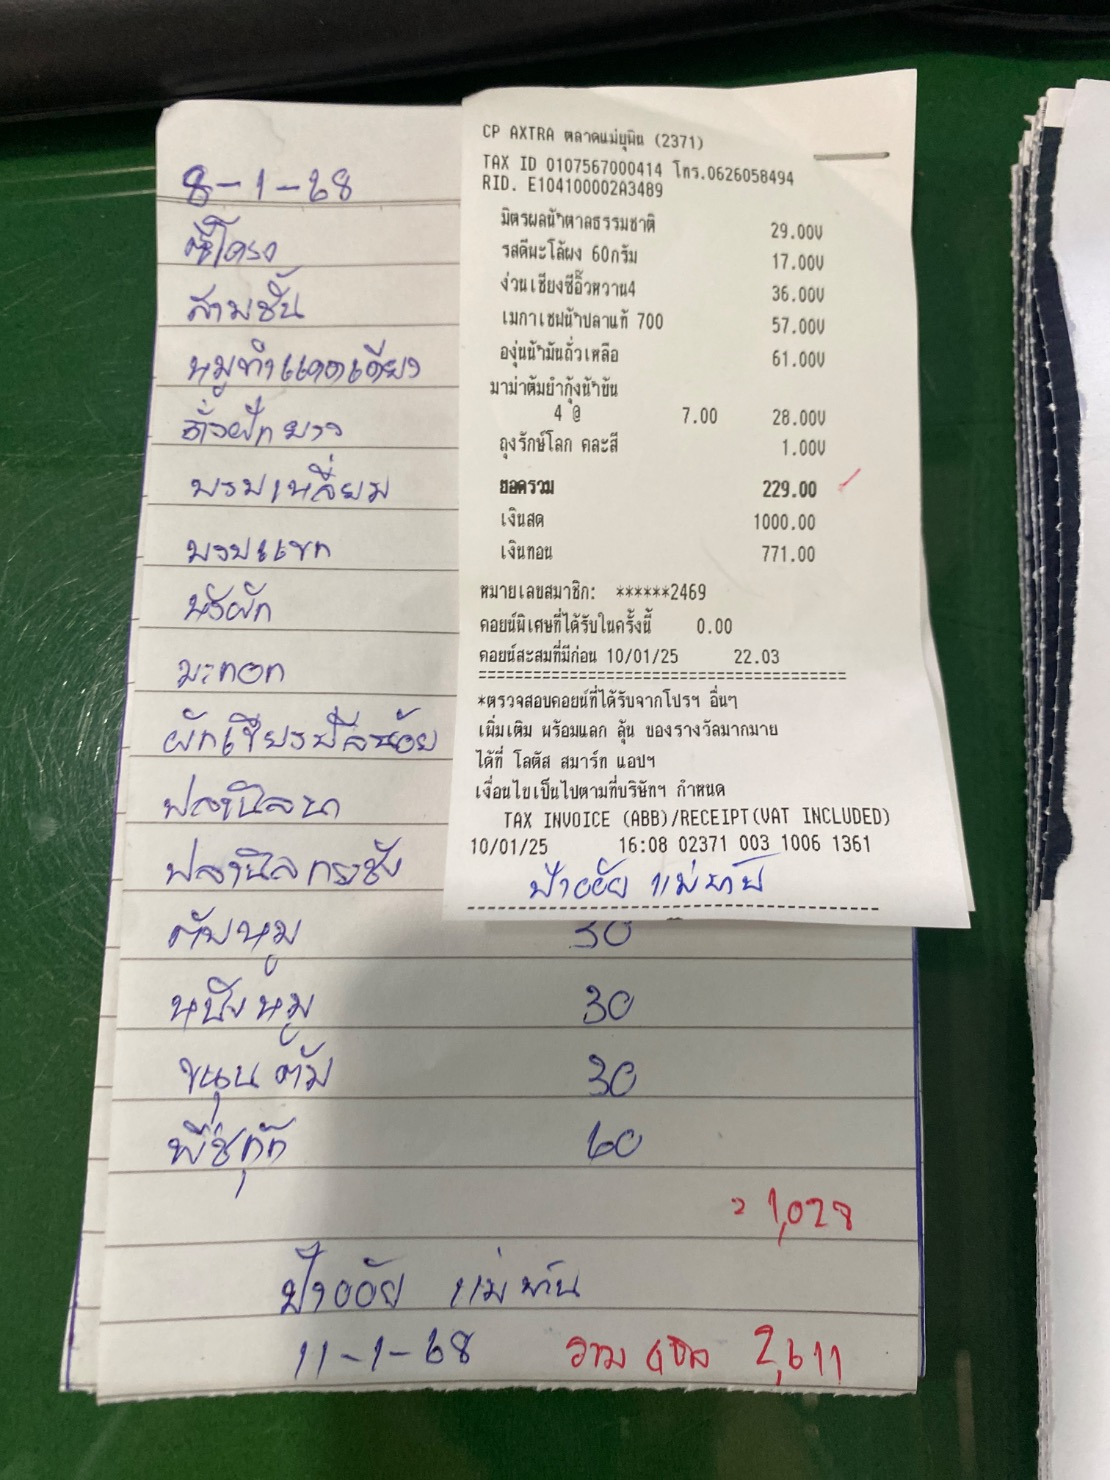 8-1-68
ซี่โครง
สามชั้น
หมูทำแดดเดียว
ถั่วฝักยาว
บวบเหลี่ยม
บวบแขก
หัวผัก
มะกอก
ฟักเขียวผีสน้อย
ปลานิลนา
ปลานิลกระชัง
ตับหมู 30
หนังหมู 30
ขนุนต้ม 30
พืชกุ๊ก 60
= 1,028
ป้าออัย แม่บ้าน
11-1-68 รวม 4 บิล 2,611
CP AXTRA ตลาดแม่ยุพิน (2371)
TAX ID 0107567000414 โทร.0626058494
RID. E104100002A3489
มิตรผลน้ำตาลธรรมชาติ 29.00V
รสดีมะโล้ผง 60กรัม 17.00V
ง่วนเชียงซีอิ๊วหวาน4 36.00V
เมกาเชฟน้ำปลาแท้ 700 57.00V
องุ่นน้ำมันถั่วเหลือ 61.00V
มาม่าต้มยำกุ้งน้ำข้น
4 @ 7.00 28.00V
ถุงรักษ์โลก คละสี 1.00V
ยอดรวม 229.00
เงินสด 1000.00
เงินทอน 771.00
หมายเลขสมาชิก: ******2469
คอยน์พิเศษที่ได้รับในครั้งนี้ 0.00
คอยน์สะสมที่มีก่อน 10/01/25 22.03
*ตรวจสอบคอยน์ที่ได้รับจากโปรฯ อื่นๆ
เพิ่มเติม พร้อมแลก ลุ้น ของรางวัลมากมาย
ได้ที่ โลตัส สมาร์ท แอปฯ
เงื่อนไขเป็นไปตามที่บริษัทฯ กำหนด
TAX INVOICE (ABB)/RECEIPT(VAT INCLUDED)
10/01/25 16:08 02371 003 1006 1361
ป้าออัย แม่บ้าน